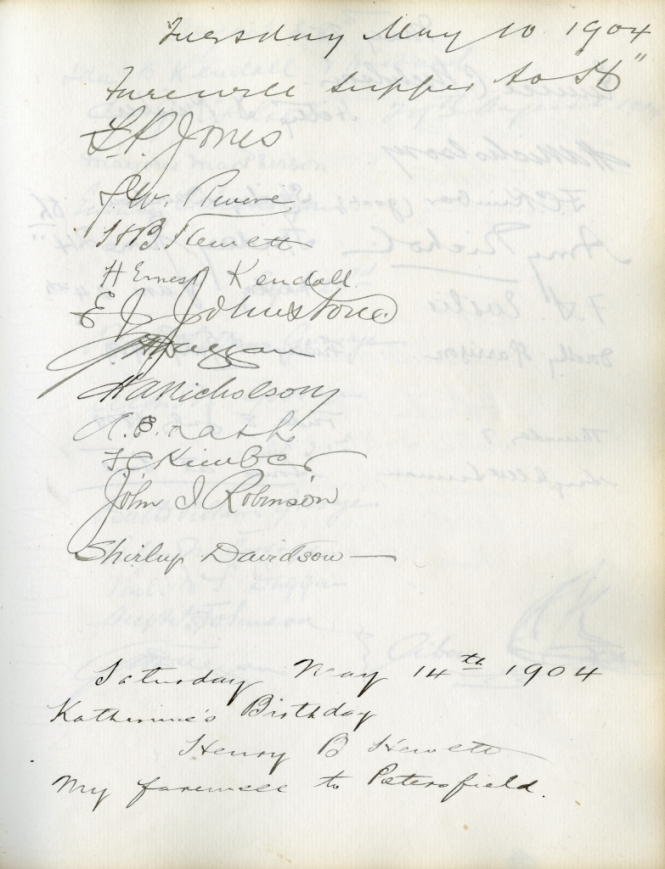 Tuesday May 10 1904
Farewell supper to "H"
L.P. Jones
J.W.
H B Hewett
H Ernest Kendall
E J Johnstone
Duggan
HA Nicholson
A.E. Nash
FC Kimber
John I Robinson
Shirley Davidson
Saturday May 14th 1904
Katharine's Birthday
Henry B Hewett
My farewell to Petersfield.